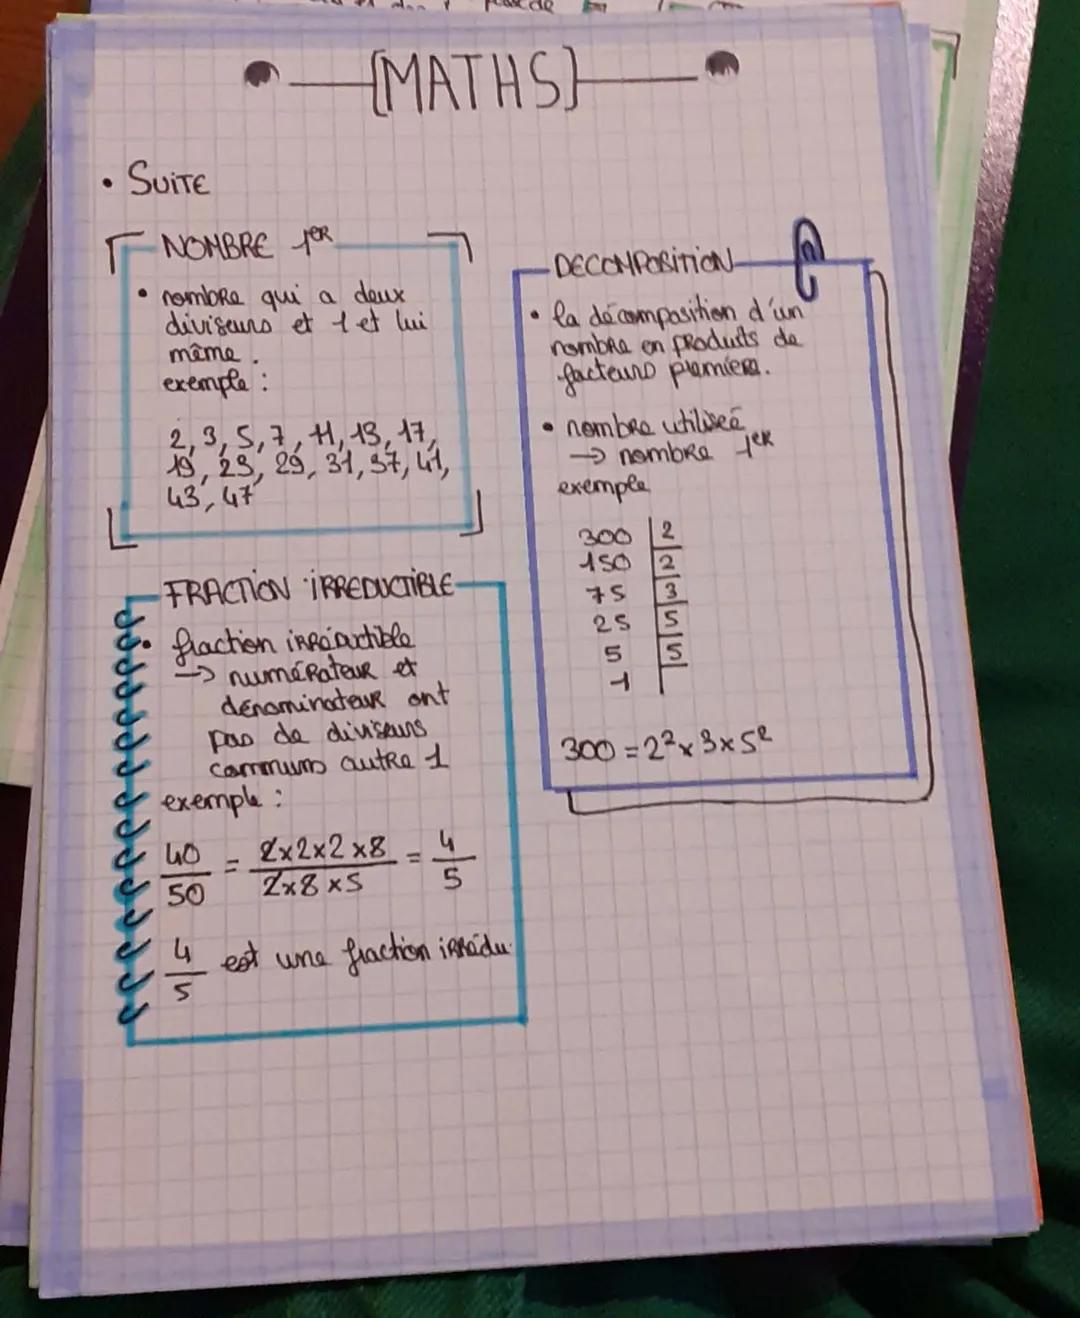 [MATHS]
• SUITE
NOMBRE 1ER
• nombre qui a deux
diviseurs et 1 et lui
même.
exemple :
2, 3, 5, 7, 11, 13, 17,
19, 23, 29, 31, 37, 41,
43, 47
FRACTION IRREDUCTIBLE
• fraction irréductible
→ numérateur et
dénominateur ont
pas de diviseurs
communs autre 1
exemple :
40/50 = 2x2x2x8/2x8x5 = 4/5
4/5 est une fraction irrédu
DECOMPOSITION
• la décomposition d'un
nombre en produits de
facteurs premiers.
• nombre utilisé
→ nombre 1er
exemple
300 | 2
150 | 2
75 | 3
25 | 5
5 | 5
1 |
300 = 2² x 3 x 5²